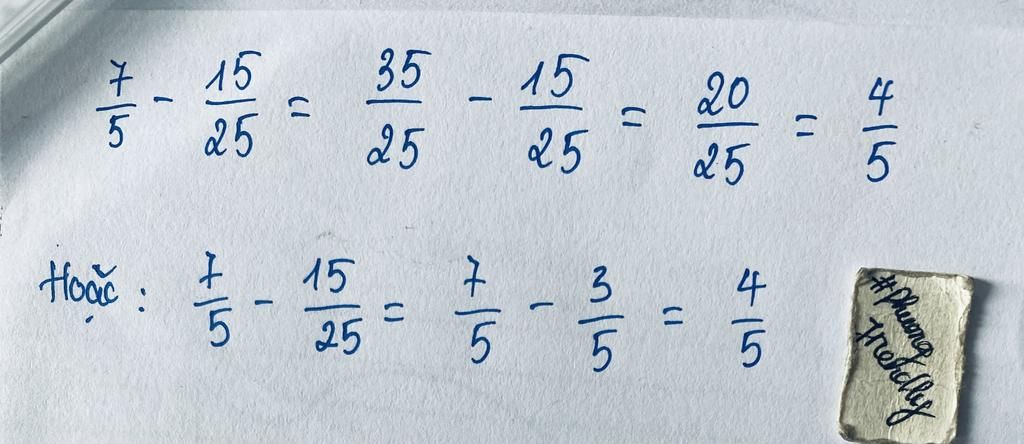 7/5 - 15/25 = 35/25 - 15/25 = 20/25 = 4/5
Hoặc: 7/5 - 15/25 = 7/5 - 3/5 = 4/5
#phuong
friendly